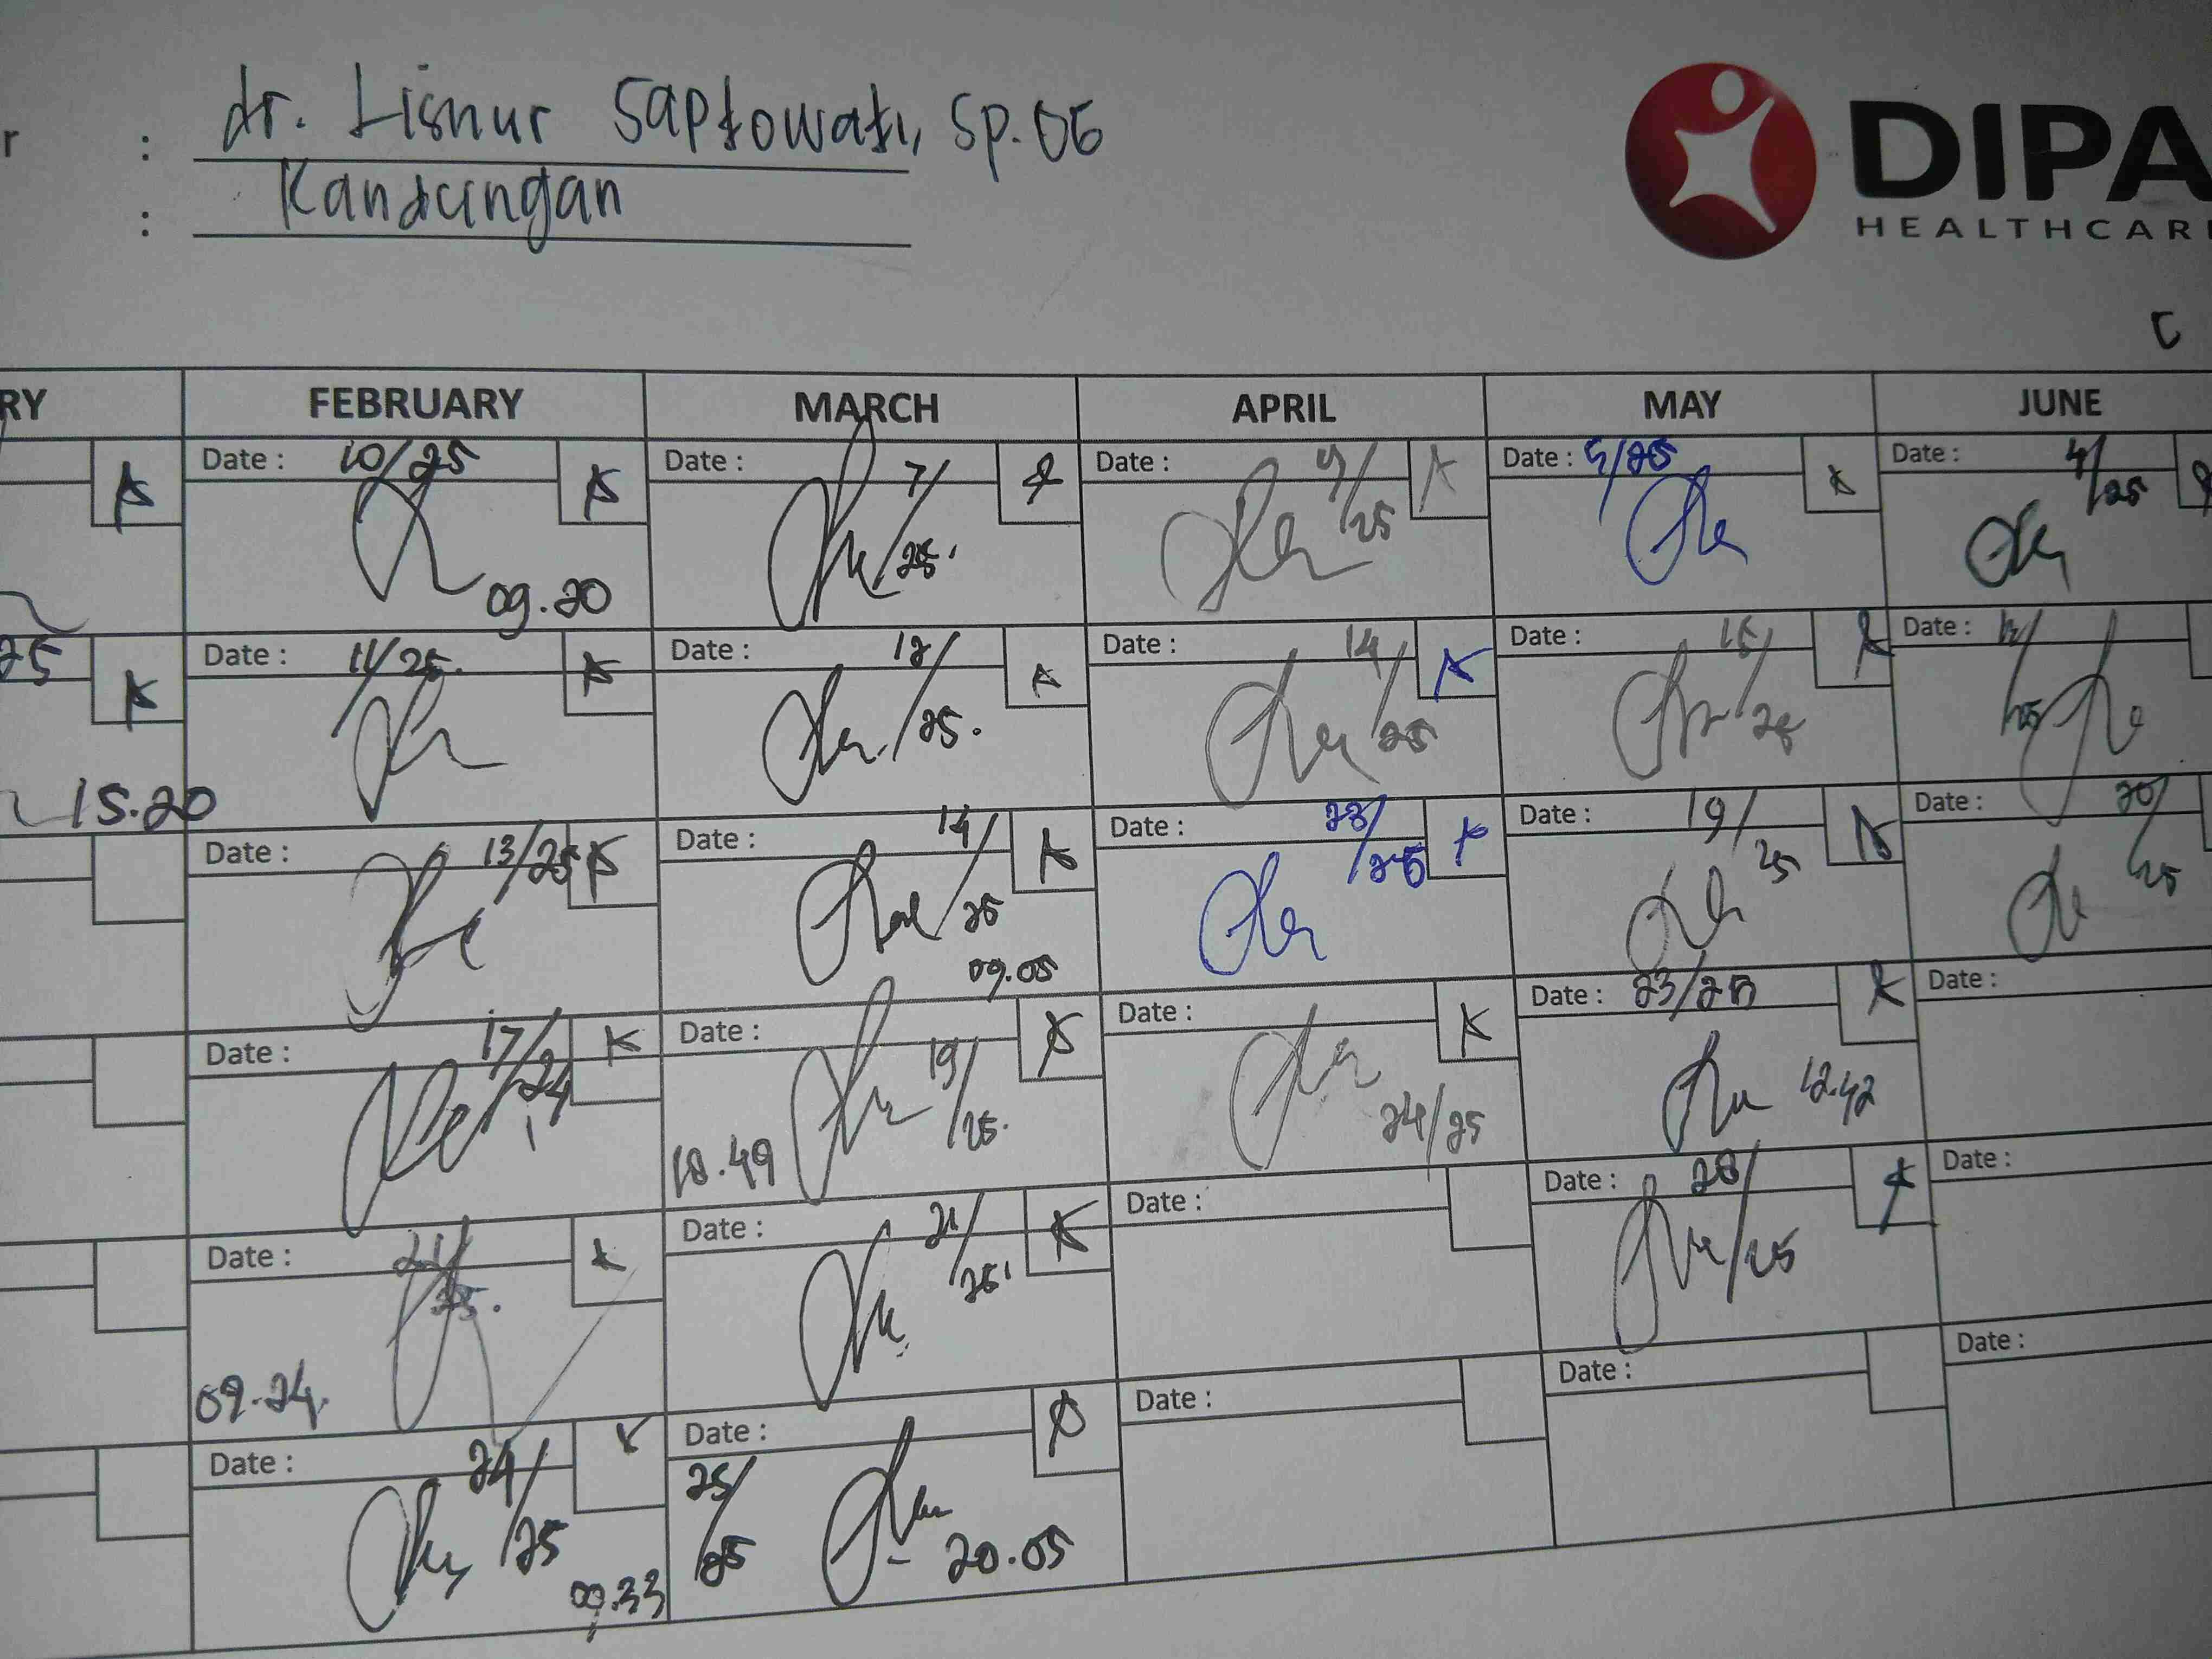 r : dr. Lisnur Saptowati, Sp.OG
: Kandungan
DIPA
HEALTHCAR
C
RY FEBRUARY MARCH APRIL MAY JUNE
Date : 10/25 Date : 7/25 Date : 9/25 Date : 5/25 Date : 4/25
09.20
25 Date : 11/25. Date : 12/25. Date : 14/25 Date : 15/25 Date : 12/25
15.20
Date : 13/25 Date : 14/25 Date : 23/25 Date : 19/25 Date : 20/25
09.05
Date : 17/24 Date : 19/25. Date : 24/25 Date : 23/25 Date :
18.49 12.42
Date : 21/25. Date : 21/25 Date : Date : 28/25 Date :
09.24.
Date : 24/25 Date : 25/25 Date : Date : Date :
09.33 20.05